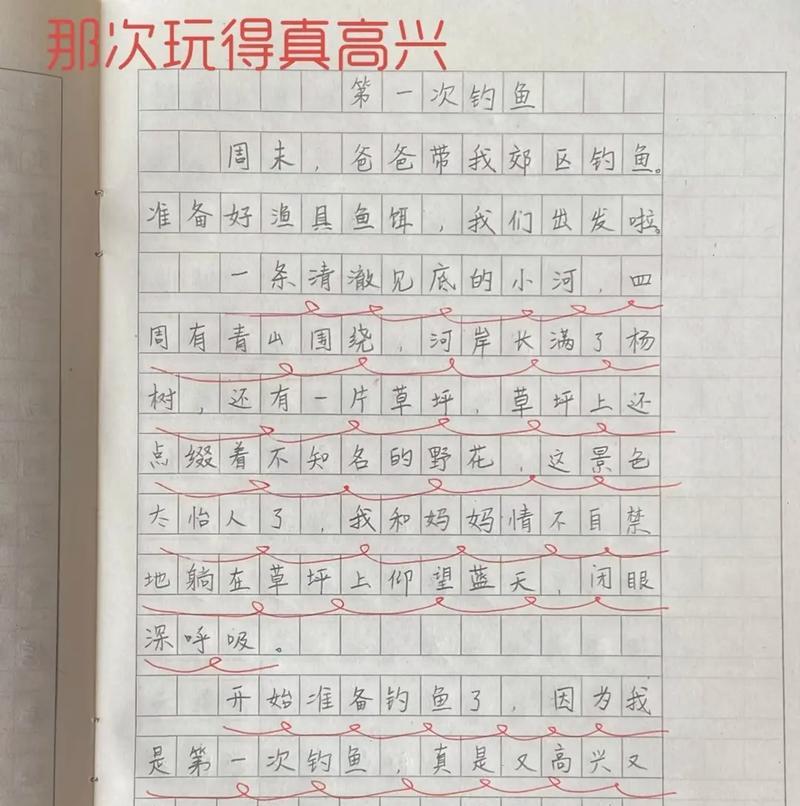 那次玩得真高兴
第一次钓鱼
周末，爸爸带我郊区钓鱼。
准备好渔具鱼饵，我们出发啦。
一条清澈见底的小河，四
周有青山围绕，河岸长满了杨
树，还有一片草坪，草坪上还
点缀着不知名的野花，这景色
太怡人了，我和妈妈情不自禁
地躺在草坪上仰望蓝天，闭眼
深呼吸。
开始准备钓鱼了，因为我
是第一次钓鱼，真是又高兴又